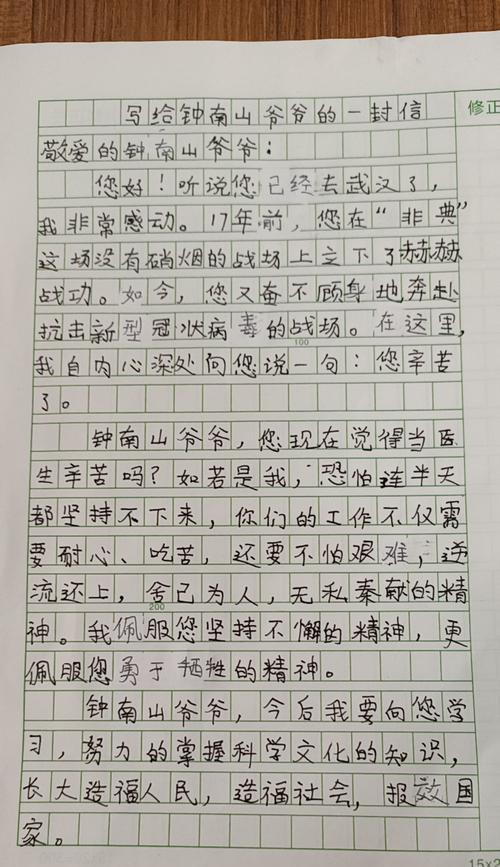 写给钟南山爷爷的一封信
修正
敬爱的钟南山爷爷：
您好！听说您已经去武汉了，
我非常感动。17年前，您在“非典”
这场没有硝烟的战场上立下了赫赫
战功。如今，您又奋不顾身地奔赴
抗击新型冠状病毒的战场。在这里，
100
我自内心深处向您说一句：您辛苦
了。
钟南山爷爷，您现在觉得当医
生辛苦吗？如若是我，恐怕连半天
都坚持不下来，你们的工作不仅需
要耐心、吃苦，还要不怕艰难，逆
流还上，舍己为人，无私奉献的精
200
神。我佩服您坚持不懈的精神，更
佩服您勇于牺牲的精神。
钟南山爷爷，今后我要向您学
习，努力的掌握科学文化的知识，
长大造福人民，造福社会，报效国
家。